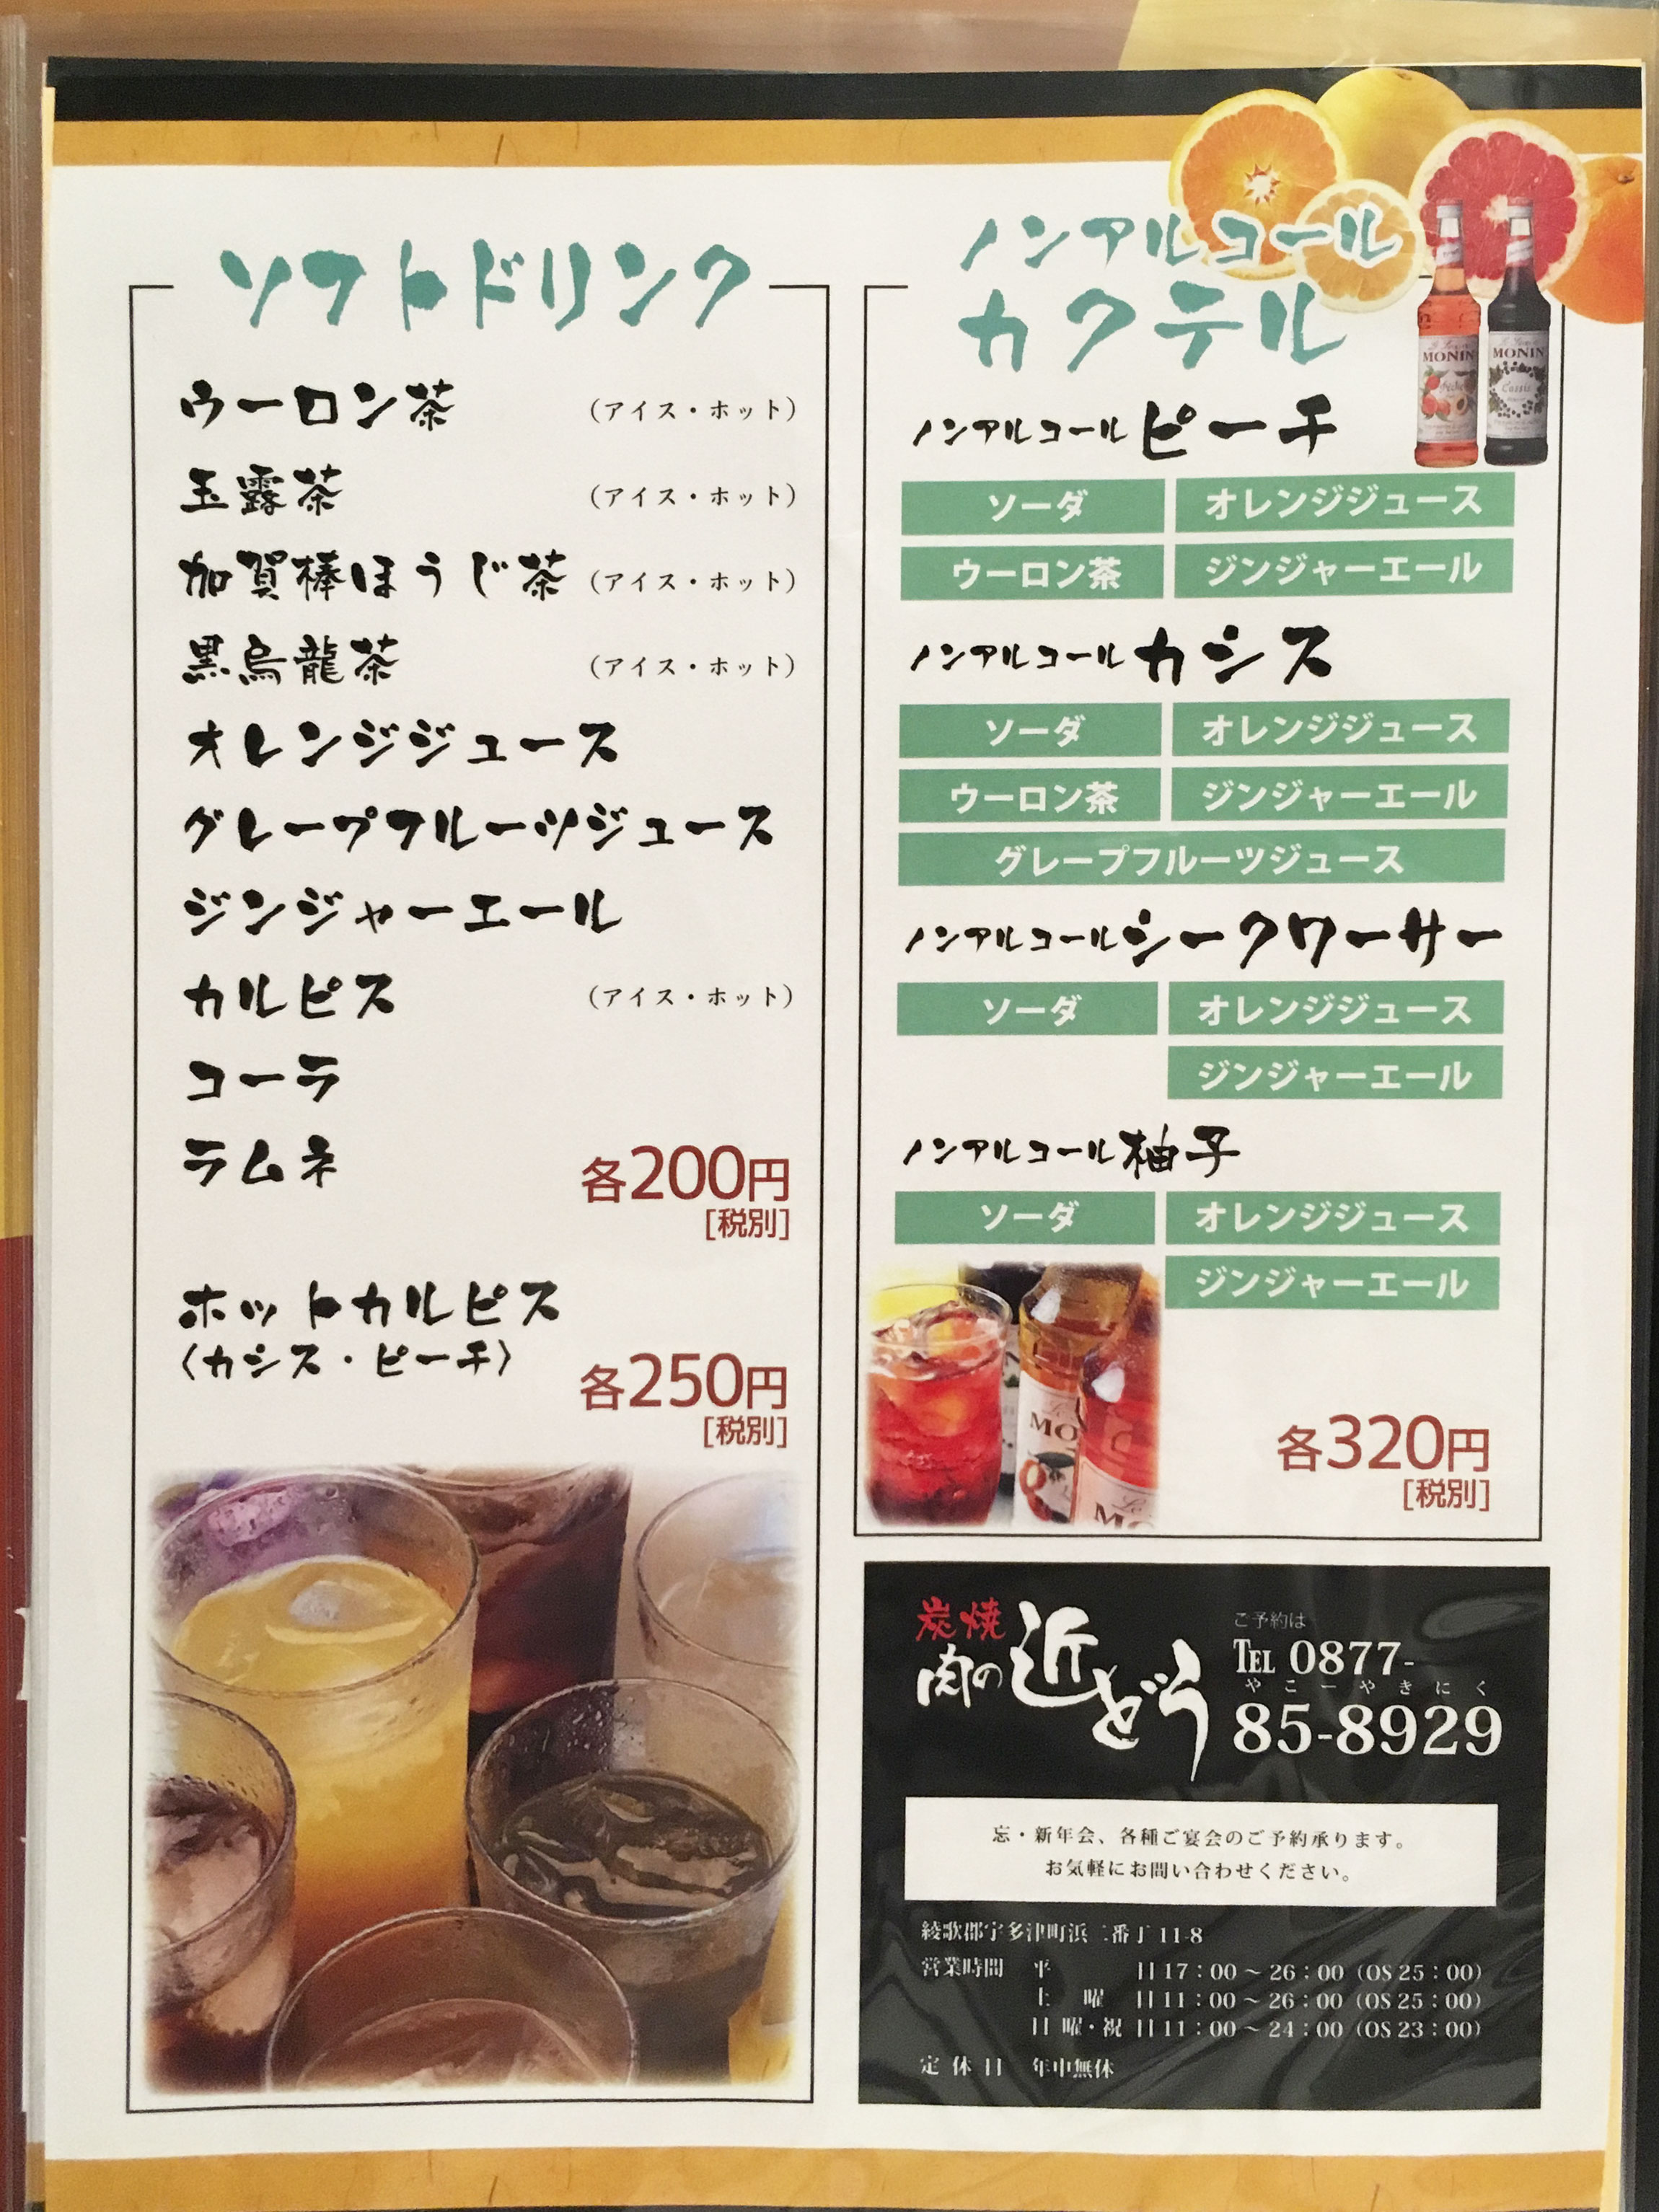 ソフトドリンク
ウーロン茶 (アイス・ホット)
玉露茶 (アイス・ホット)
加賀棒ほうじ茶 (アイス・ホット)
黒烏龍茶 (アイス・ホット)
オレンジジュース
グレープフルーツジュース
ジンジャーエール
カルピス (アイス・ホット)
コーラ
ラムネ
各200円
[税別]
ホットカルピス
〈カシス・ピーチ〉
各250円
[税別]
ノンアルコール
カクテル
MONIN MONIN
Cassis
ノンアルコールピーチ
ソーダ オレンジジュース
ウーロン茶 ジンジャーエール
ノンアルコールカシス
ソーダ オレンジジュース
ウーロン茶 ジンジャーエール
グレープフルーツジュース
ノンアルコールシークワーサー
ソーダ オレンジジュース
ジンジャーエール
ノンアルコール柚子
ソーダ オレンジジュース
ジンジャーエール
各320円
[税別]
炭焼
肉の近どう
ご予約は
TEL 0877-
やこーやきにく
85-8929
忘・新年会、各種ご宴会のご予約承ります。
お気軽にお問い合わせください。
綾歌郡宇多津町浜二番丁11-8
営業時間 平 日17：00～26：00（OS 25：00）
土 曜 日11：00～26：00（OS 25：00）
日曜・祝日11：00～24：00（OS 23：00）
定休日 年中無休